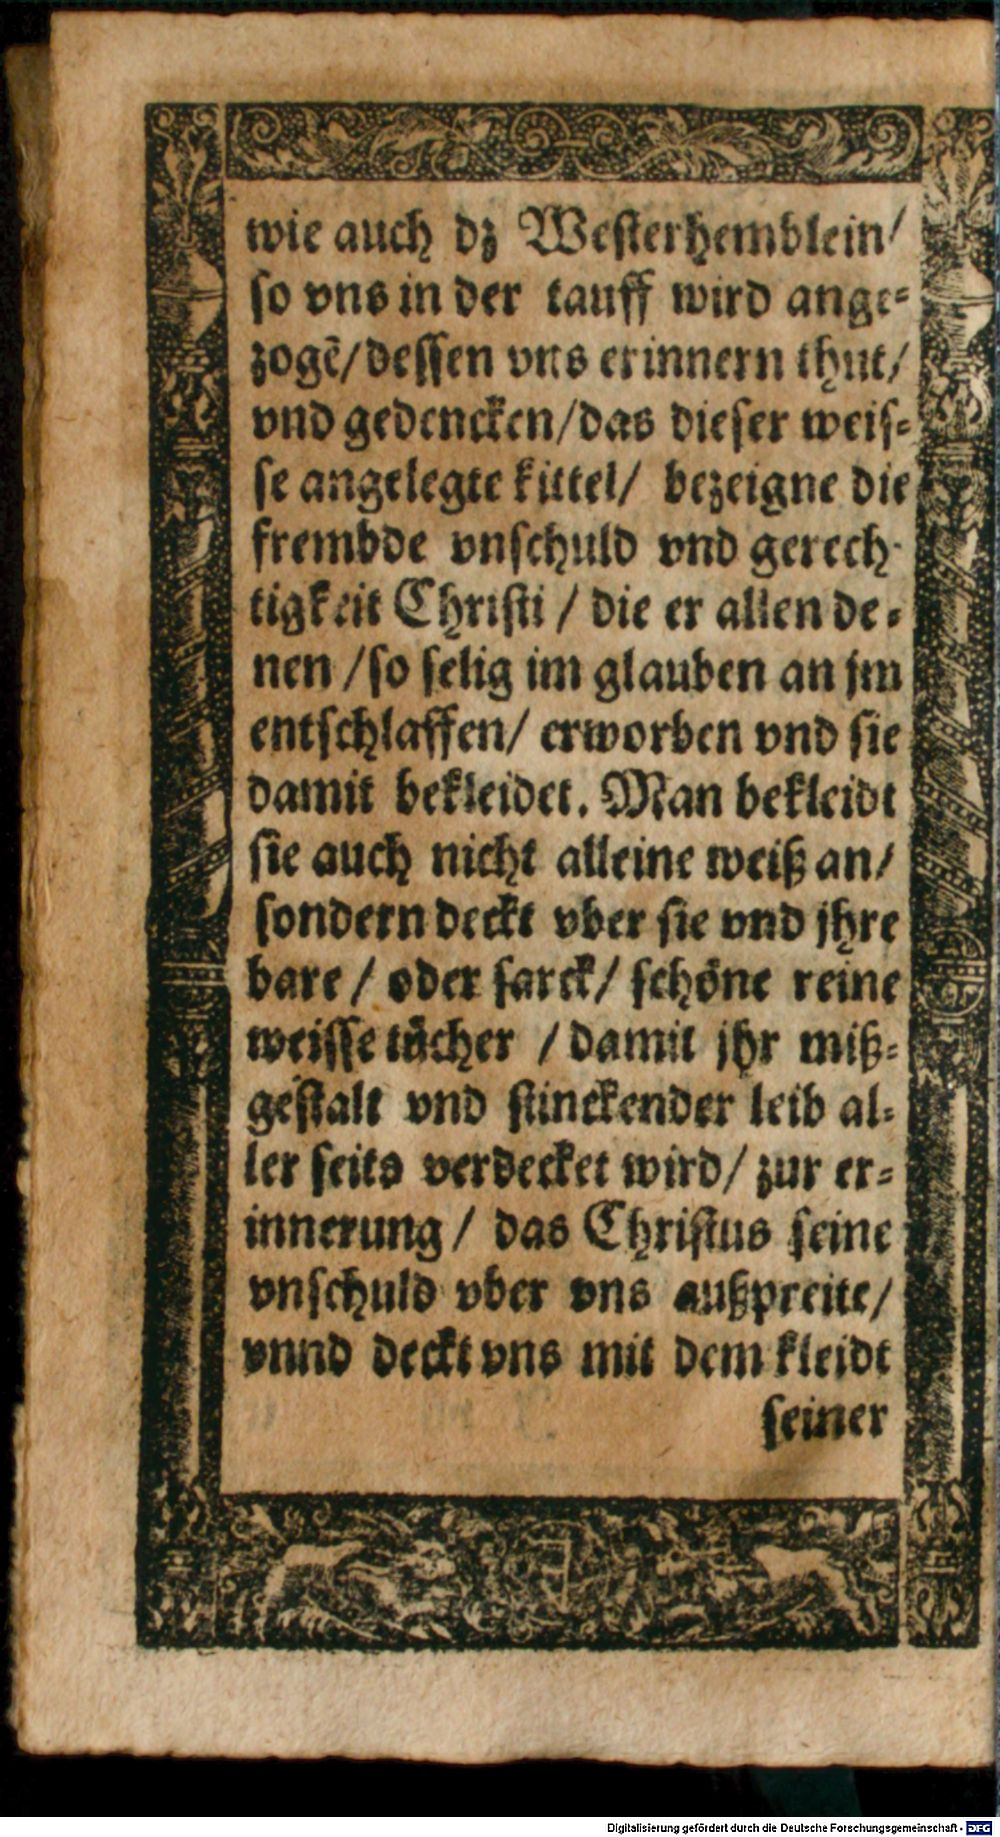 wie auch dz Westerhemblein/
so vns in der tauff wird ange-
zogē/dessen vns erinnern thut/
vnd gedencken/das dieser weis-
se angelegte kittel/ bezeigne die
frembde vnschuld vnd gerech-
tigkeit Christi / die er allen de-
nen /so selig im glauben an jm
entschlaffen/ erworben vnd sie
damit bekleidet. Man bekleidt
sie auch nicht alleine weiß an/
sondern deckt vber sie vnd jhre
bare / oder sarck/ schöne reine
weisse tücher / damit jhr miß-
gestalt vnd stinckender leib al-
ler seits verdecket wird/ zur er-
innerung / das Christus seine
vnschuld vber vns außpreite/
vnnd deckt vns mit dem kleidt
seiner
Digitalisierung gefördert durch die Deutsche Forschungsgemeinschaft - DFG